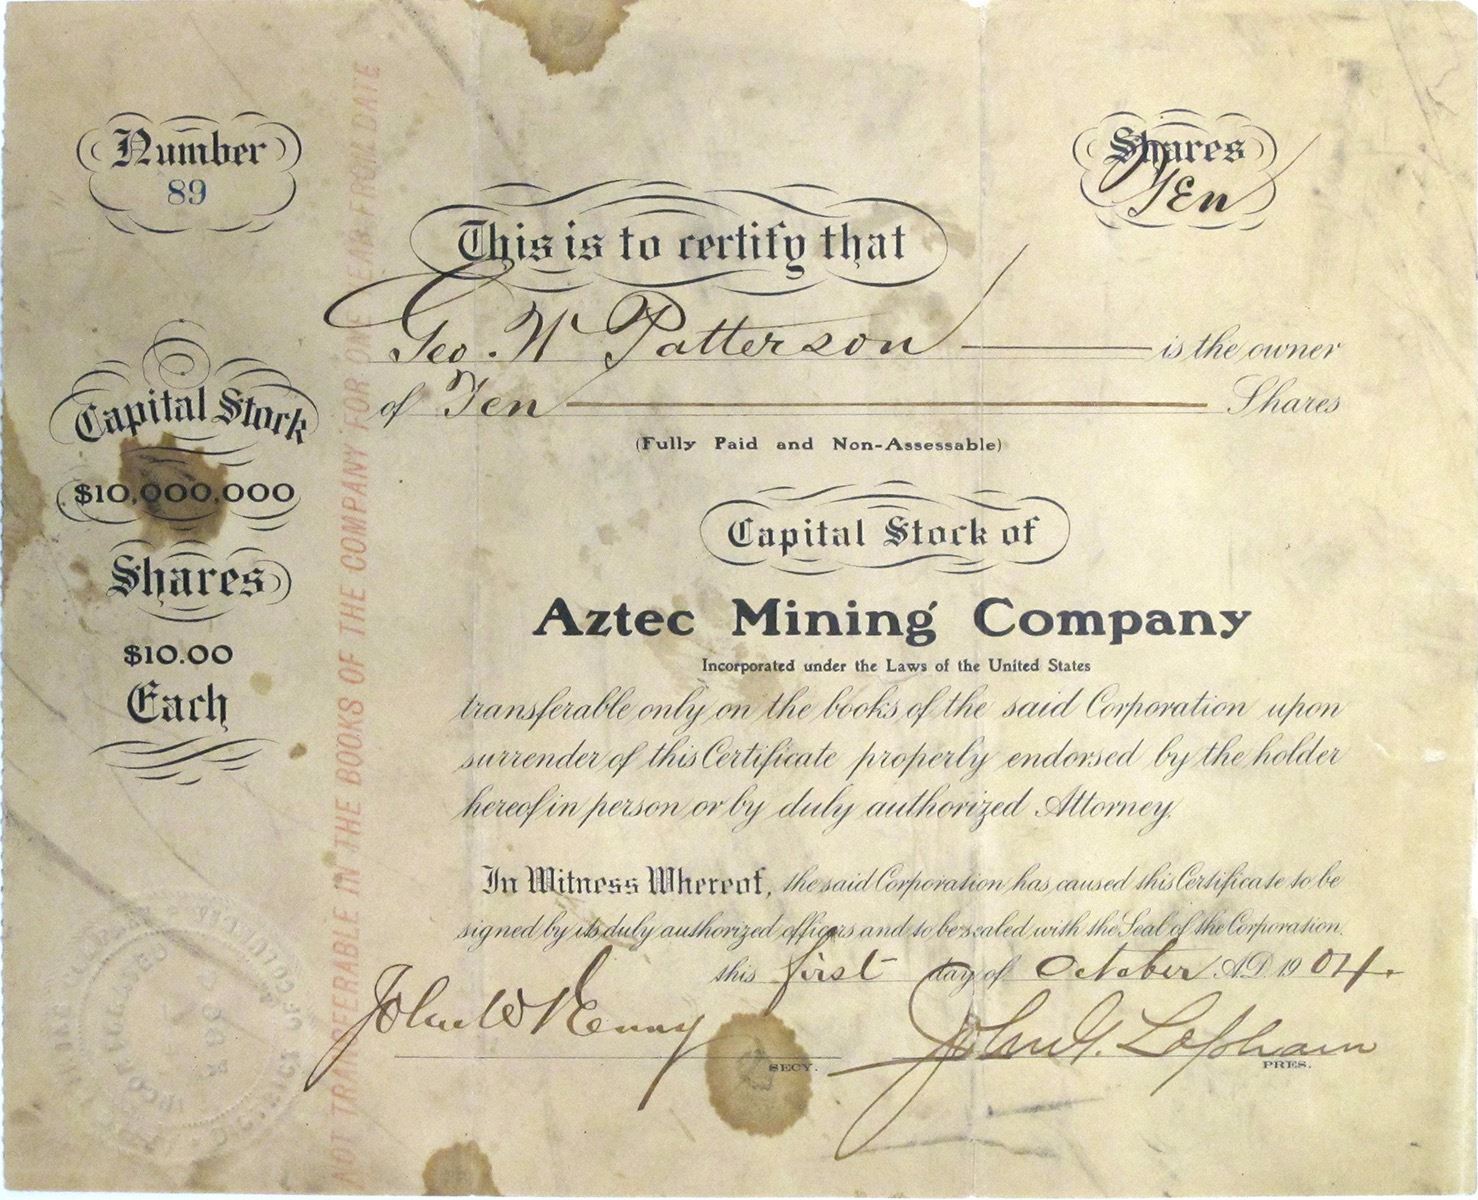 Number
89
Shares
Ten
This is to certify that
Geo. W Patterson is the owner
of Ten Shares
(Fully Paid and Non-Assessable)
Capital Stock
$10,000,000
Shares
$10.00
Each
Capital Stock of
Aztec Mining Company
Incorporated under the Laws of the United States
transferable only on the books of the said Corporation upon
surrender of this Certificate properly endorsed by the holder
hereof in person or by duly authorized Attorney.
In Witness Whereof, the said Corporation has caused this Certificate to be
signed by its duly authorized officers and to be sealed with the Seal of the Corporation.
this first day of October A.D. 1904.
John W Kenny
SECY.
John G. Lapham
PRES.
NOT TRANSFERABLE IN THE BOOKS OF THE COMPANY FOR ONE YEAR FROM DATE